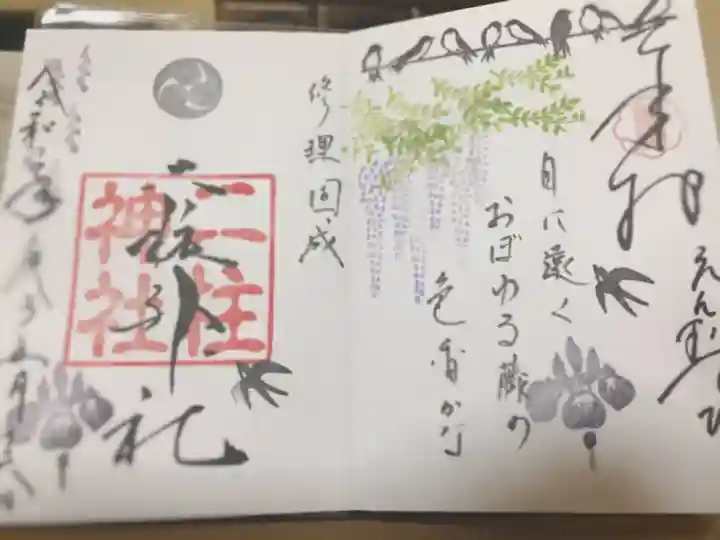 奉拝
えんむすび
目に遠く
おぼゆる藤の
色香かな
修理固成
二柱
神社
二柱神社
令和